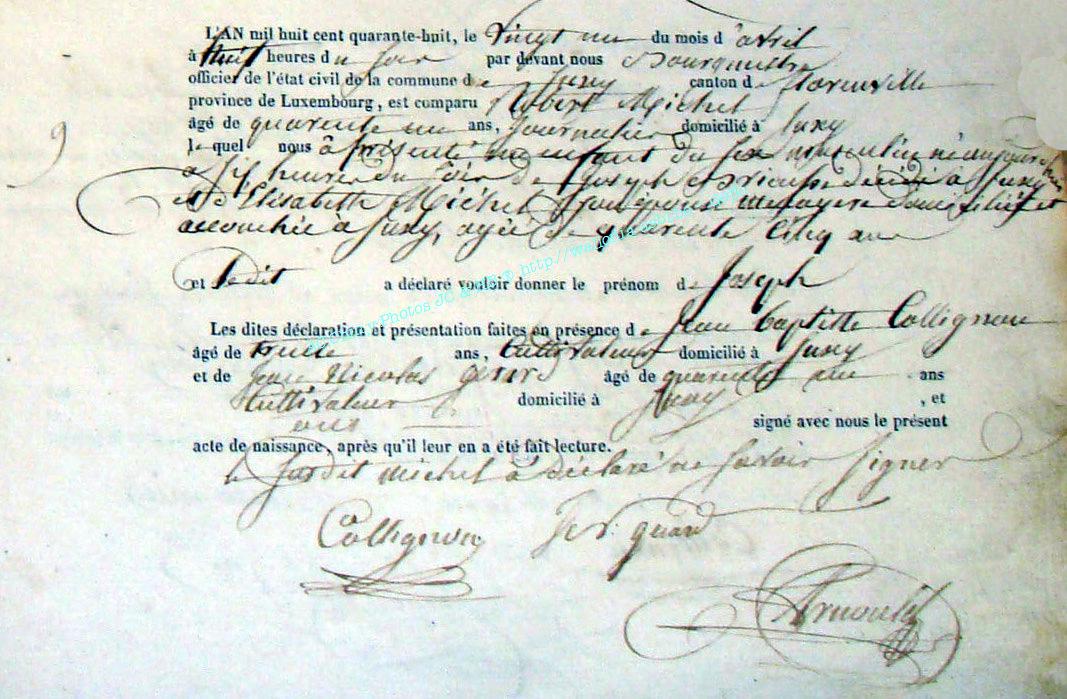 L'AN mil huit cent quarante-huit, le vingt un du mois d'avril
à huit heures du soir par devant nous
officier de l'état civil de la commune de Juxy canton de florenville
province de Luxembourg, est comparu Robert Michel
âgé de quarente un ans, journalier domicilié à Juxy
le quel nous à présenté un enfant du sex masculin né aujourd'hui
à six heures du soir de Joseph décédé à Juxy
et d'Elisabeth Michel Son épouse menagere domiciliée et
accouchée à Juxy, agée de quarente cinq ans
et ledit a déclaré vouloir donner le prénom de Joseph
Les dites déclaration et présentation faites en présence de Jean baptitte Collignon
âgé de trente ans, Cultivateur domicilié à Juxy
et de Jean Nicolas âgé de quarente un ans
Cultivateur domicilié à Juxy , et
ont signé avec nous le présent
acte de naissance, après qu'il leur en a été fait lecture.
le susdit Michel à déclaré ne savoir signer
Collignon
9